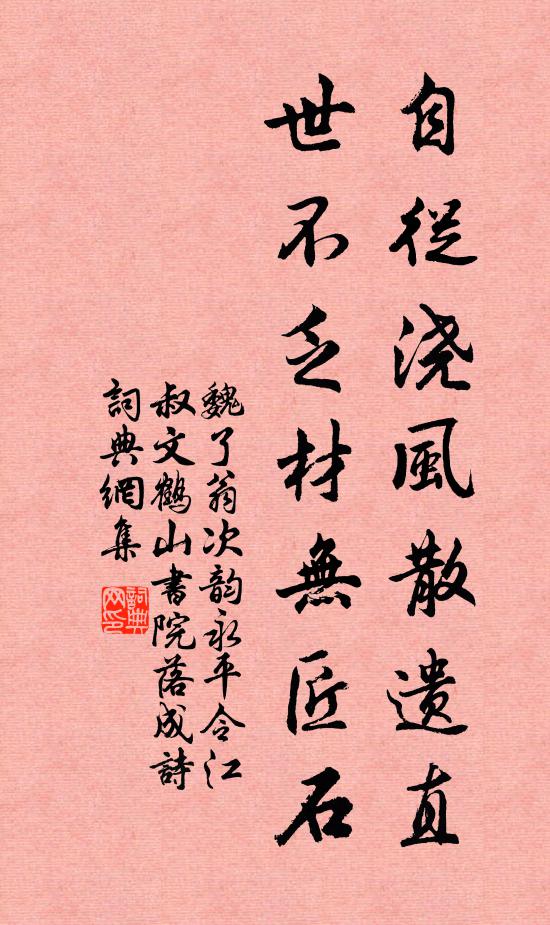 自從浇風散遗直
世不乏材無匠石
魏了翁次韵永平令江
叔文鶴山書院落成詩
詞典網集
詞典网印